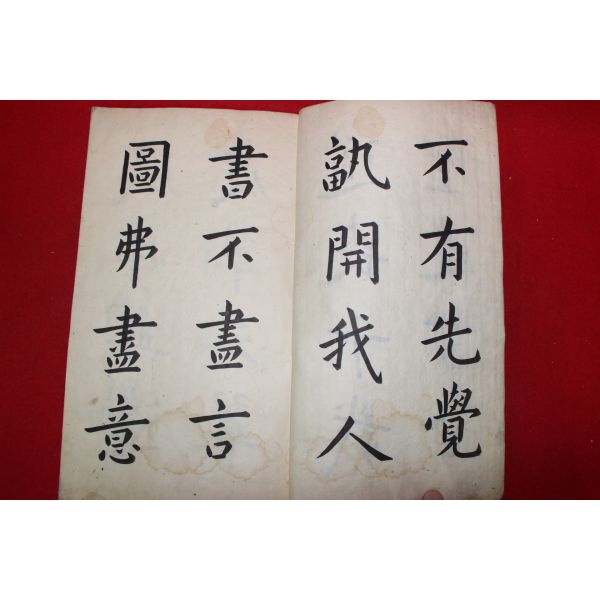 不有先覺
孰開我人
書不盡言
圖弗盡意